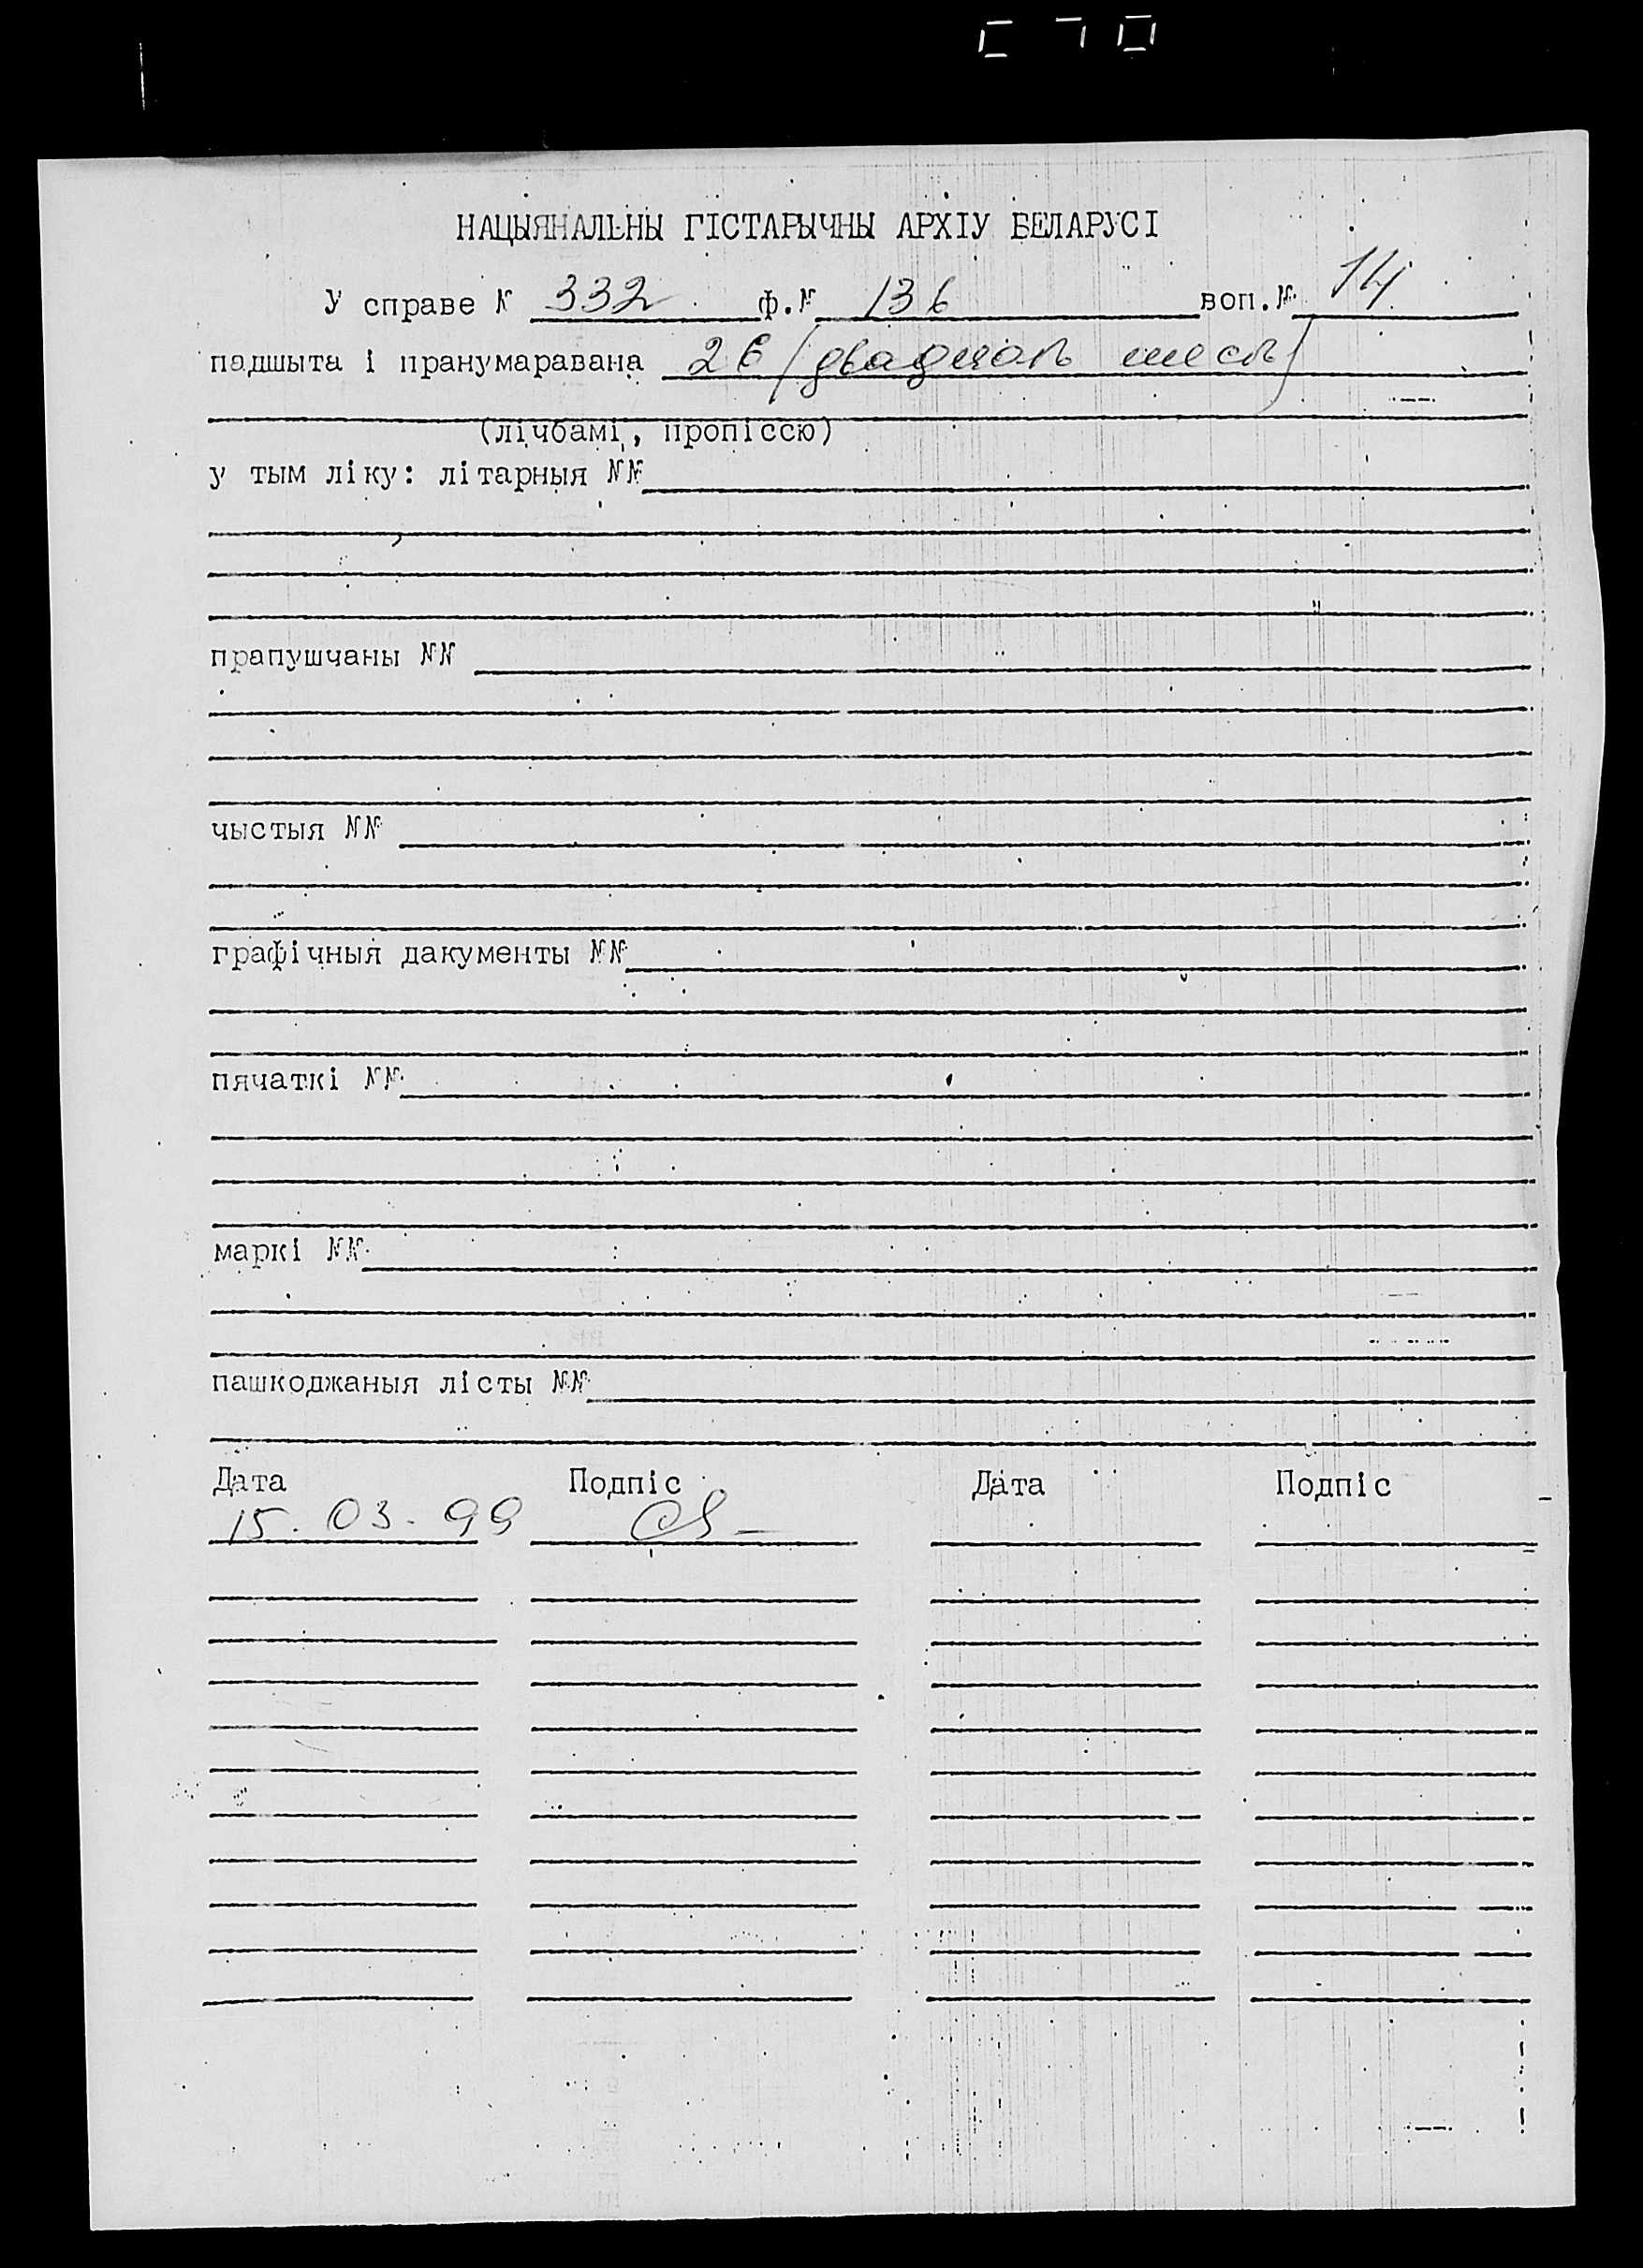 НАЦЫЯНАЛЬНЫ ГІСТАРЫЧНЫ АРХІУ БЕЛАРУСІ
У справе № 332 ф.№ 136 воп.№ 14
падшыта і пранумаравана 26 (двадцать шесть)
(лічбамі, пропіссю)
у тым ліку: літарныя №№
прапушчаны №№
чыстыя №№
графічныя дакументы №№
пячаткі №№
маркі №№
пашкоджаныя лісты №№
Дата Подпіс Дата Подпіс
15.03.99